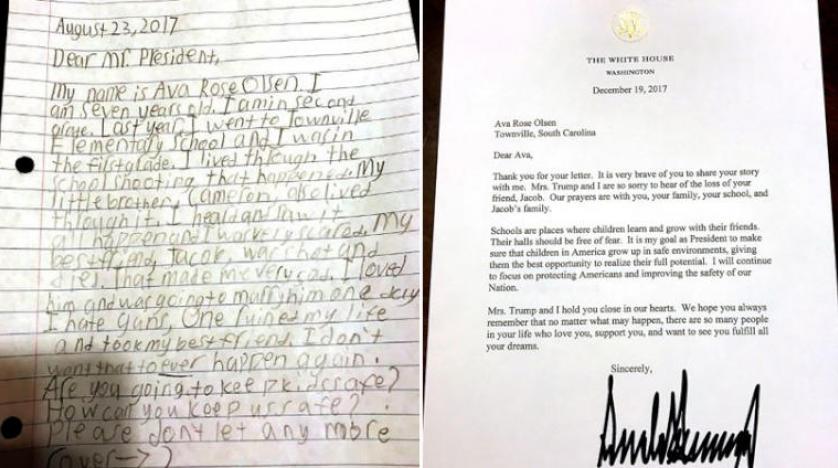 August 23, 2017
Dear Mr. President,
My name is Ava Rose Olsen. I
am seven years old. I am in second
grade. Last year I went to Townville
Elementary School and I was in
the first grade. I lived through the
school shooting that happened. My
little brother, Cameron, also lived
through it. I heard and saw it
all happen and I was very scared. My
best friend, Jacob, was shot and
died. That made me very sad. I loved
him and was going to marry him one day
I hate guns. One ruined my life
and took my best friend. I don't
want that to ever happen again.
Are you going to keep kids safe?
How can you keep us safe?
Please don't let any more
(over→)
THE WHITE HOUSE
WASHINGTON
December 19, 2017
Ava Rose Olsen
Townville, South Carolina
Dear Ava,
Thank you for your letter. It is very brave of you to share your story
with me. Mrs. Trump and I are so sorry to hear of the loss of your
friend, Jacob. Our prayers are with you, your family, your school, and
Jacob's family.
Schools are places where children learn and grow with their friends.
Their halls should be free of fear. It is my goal as President to make
sure that children in America grow up in safe environments, giving
them the best opportunity to realize their full potential. I will continue
to focus on protecting Americans and improving the safety of our
Nation.
Mrs. Trump and I hold you close in our hearts. We hope you always
remember that no matter what may happen, there are so many people
in your life who love you, support you, and want to see you fulfill all
your dreams.
Sincerely,